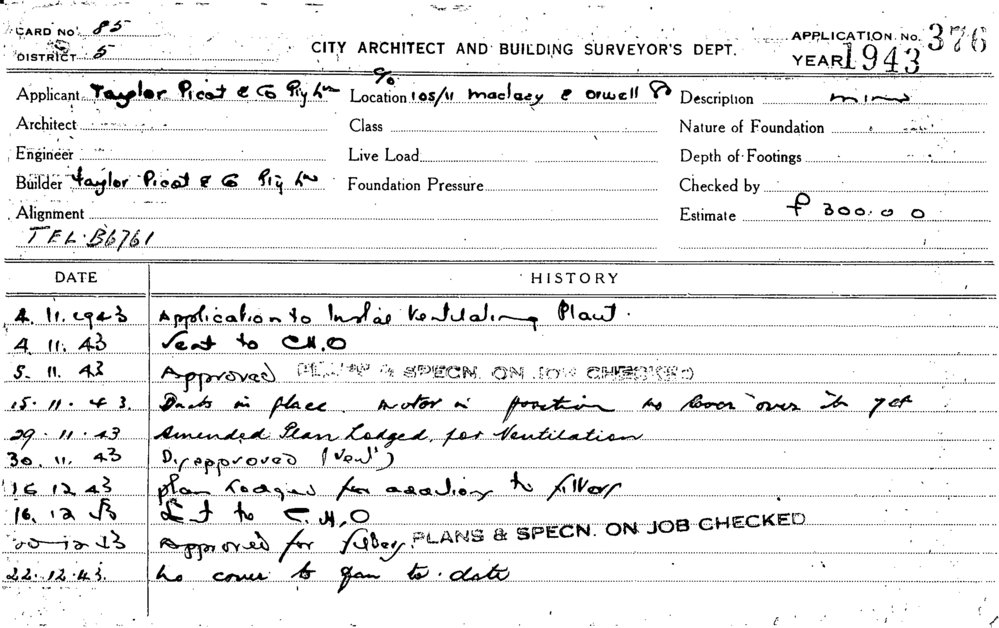 CARD No. 85
DISTRICT 5
CITY ARCHITECT AND BUILDING SURVEYOR'S DEPT.
APPLICATION No. 376
YEAR 1943
Applicant Taylor Picot & Co Pty Ltd
Location c/o 105/11 Macleay & Orwell
Description
Architect
Class
Nature of Foundation
Engineer
Live Load
Depth of Footings
Builder Taylor Picot & Co Pty Ltd
Foundation Pressure
Checked by
Alignment
Estimate £ 300.0 0
TEL. B6761
DATE HISTORY
4. 11. 1943 Application to Instal Ventilating Plant.
4. 11. 43 Sent to C.H.O
5. 11. 43 Approved PLANS & SPECN. ON JOB CHECKED
15. 11. 43. Ducts in place. motor in position no cover over it yet
29. 11. 43 Amended Plan Lodged for Ventilation
30. 11. 43 Disapproved (Vent')
16 12 43 plan lodged for additions to
16. 12 43 to C.H.O
12 43 Approved for PLANS & SPECN. ON JOB CHECKED
22. 12. 43. No cover to fan to date